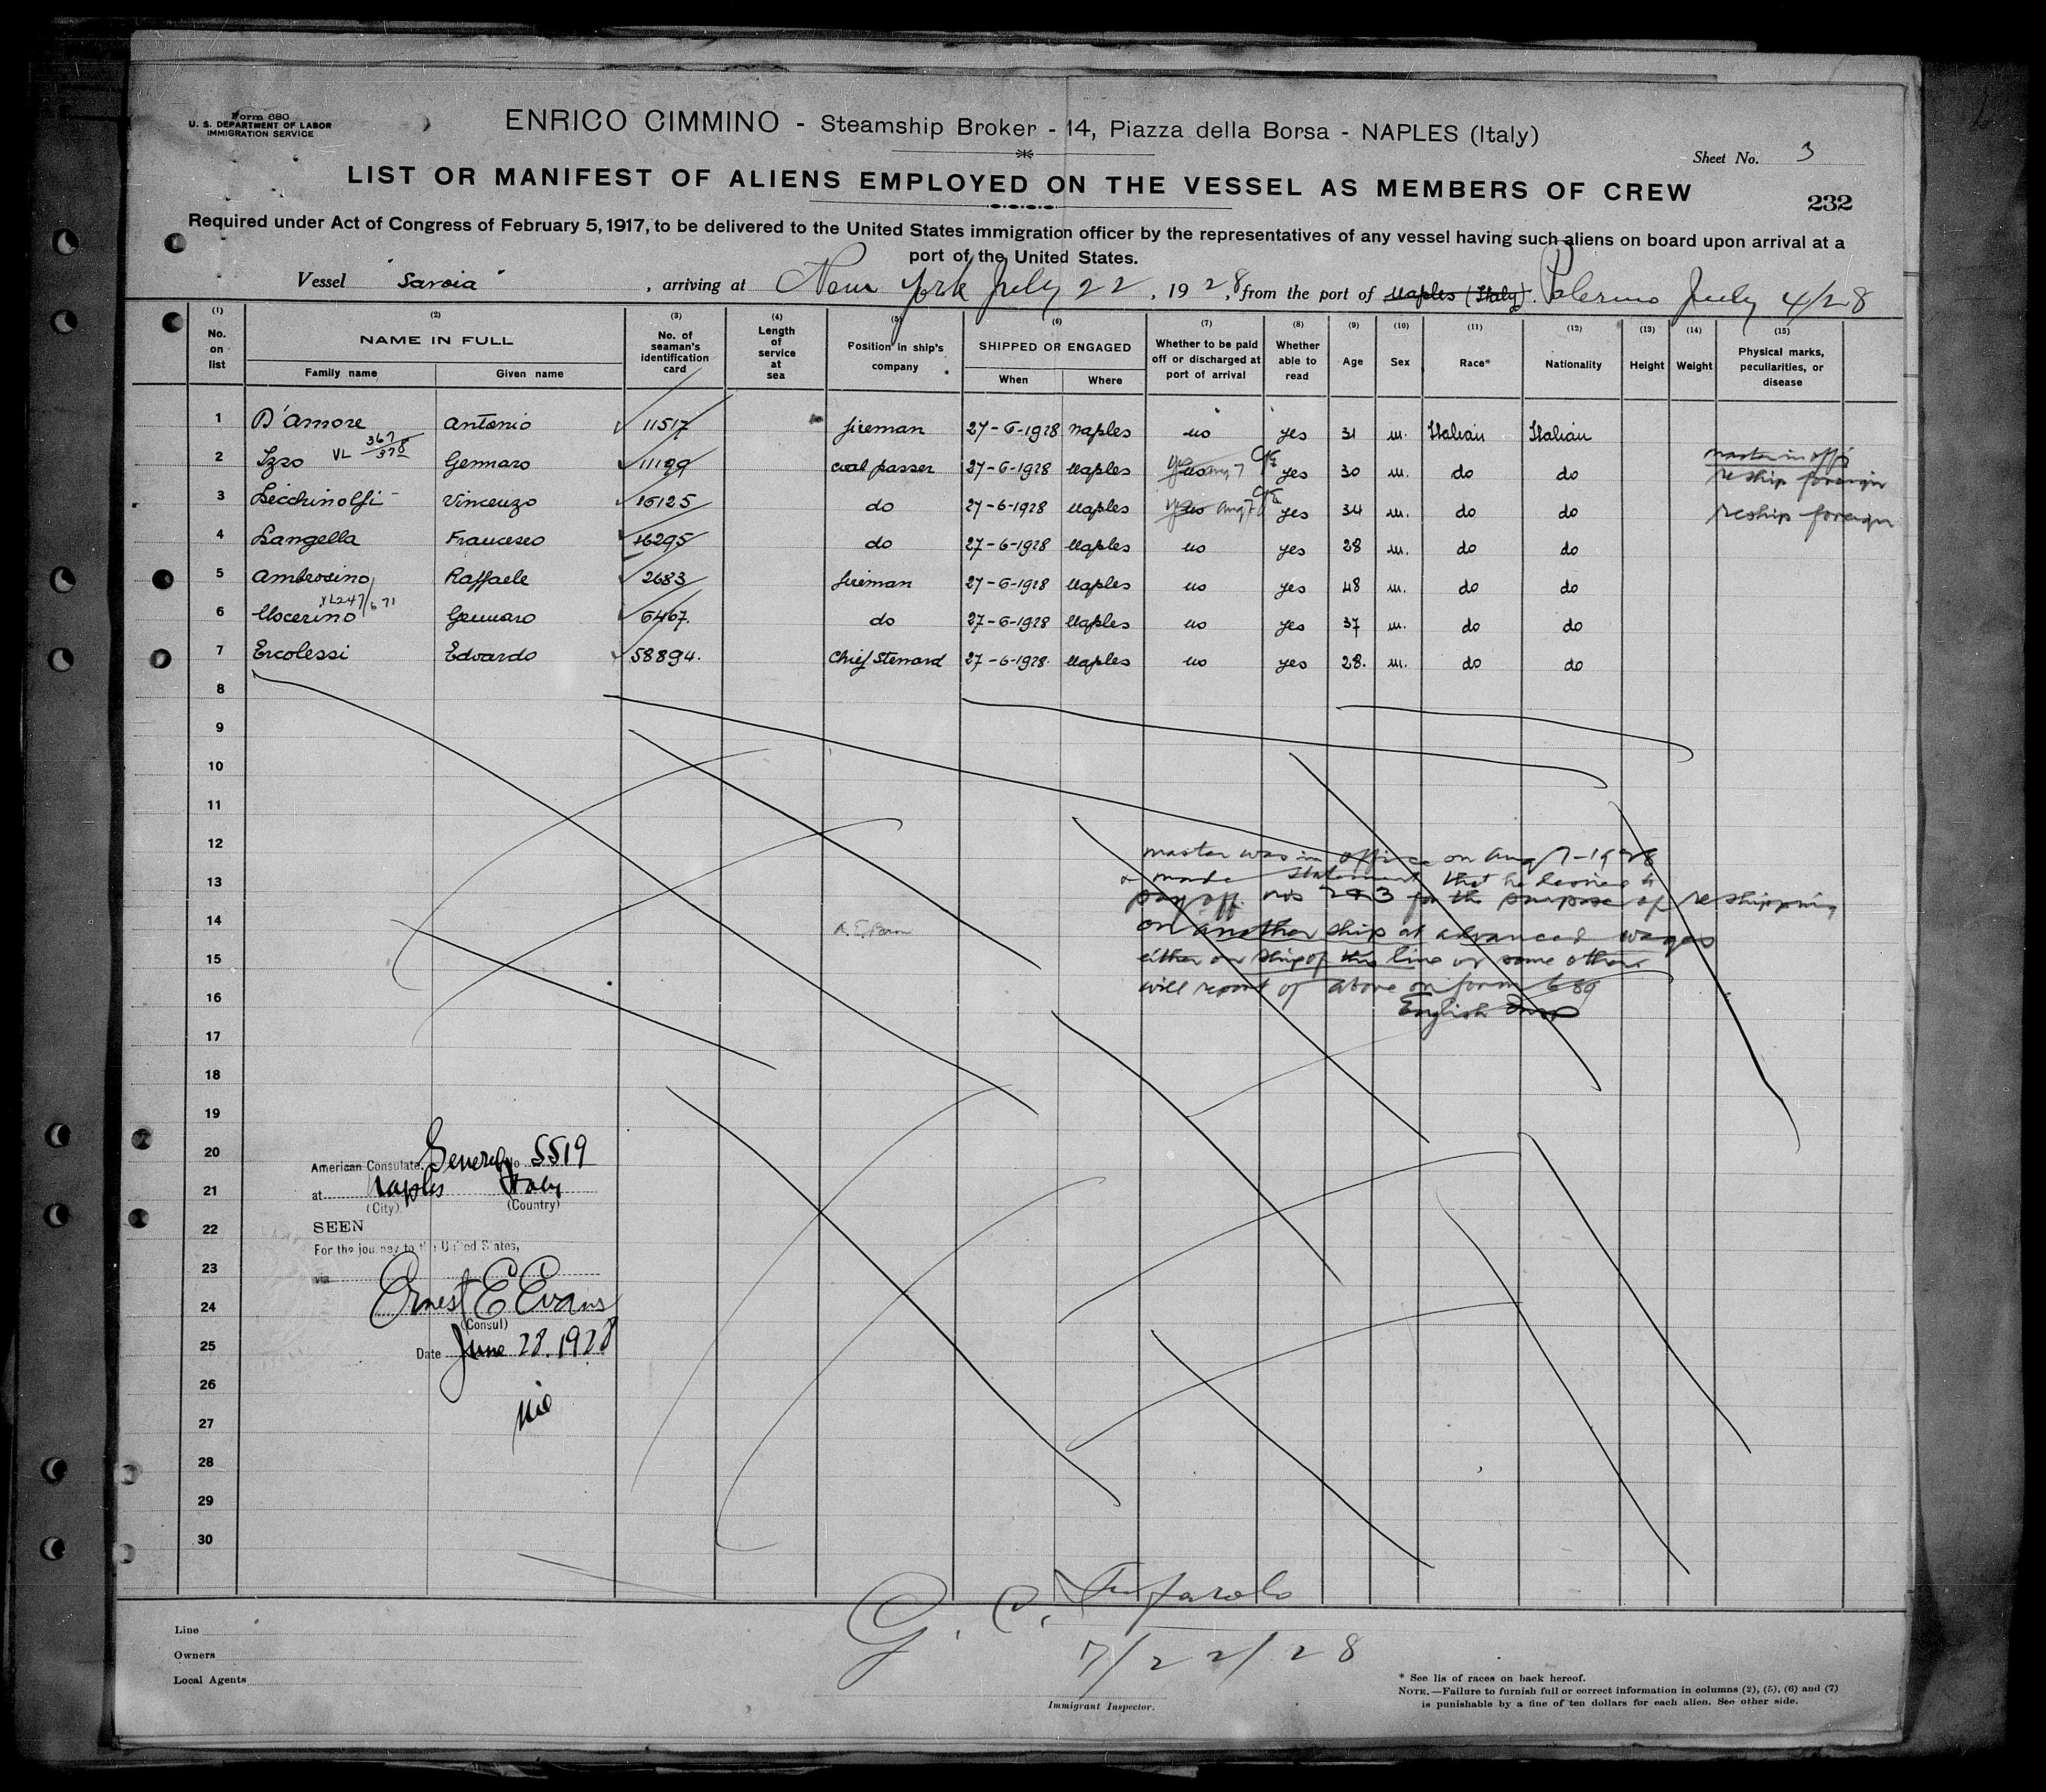 Form 680
U. S. DEPARTMENT OF LABOR
IMMIGRATION SERVICE
ENRICO CIMMINO - Steamship Broker - 14, Piazza della Borsa - NAPLES (Italy)
Sheet No. 3
LIST OR MANIFEST OF ALIENS EMPLOYED ON THE VESSEL AS MEMBERS OF CREW
232
Required under Act of Congress of February 5, 1917, to be delivered to the United States immigration officer by the representatives of any vessel having such aliens on board upon arrival at a
port of the United States.
Vessel "Savoia", arriving at New York July 22, 1928, from the port of Naples (Italy). Palermo July 4/28
(1) (2) (3) (4) (5) (6) (7) (8) (9) (10) (11) (12) (13) (14) (15)
No. on list NAME IN FULL No. of seaman's identification card Length of service at sea Position in ship's company SHIPPED OR ENGAGED Whether to be paid off or discharged at port of arrival Whether able to read Age Sex Race* Nationality Height Weight Physical marks, peculiarities, or disease
Family name Given name When Where
1 D'Amore Antonio 11517 fireman 27-6-1928 Naples no yes 31 m. Italian Italian
VL 367/378
master in offis
2 Izzo Gennaro 11199 coal passer 27-6-1928 Naples yes no aug 7 yes 30 m. do do reship foreign
3 Licchinolfi Vincenzo 16125 do 27-6-1928 Naples yes no aug 7 yes 34 m. do do reship foreign
4 Langella Francesco 16295 do 27-6-1928 Naples no yes 28 m. do do
5 Ambrosino Raffaele 2683 fireman 27-6-1928 Naples no yes 48 m. do do
VL247/671
6 Uscerino Gennaro 6467. do 27-6-1928 Naples no yes 37 m. do do
7 Ercolessi Edoardo 58894. Chief Steward 27-6-1928. Naples no yes 28. m. do do
8
9
10
11
12 master was in office on Aug 7-1928
13 & made statement that he desires to
pay off nos 2 & 3 for the purpose of reshipping
14 on another ship at advanced wages
15 either on ship of this line or some other
16 will report of above on form 689
English
17
18
19
20 American Consulate General No 5519
21 at Naples Italy
(City) (Country)
22 SEEN
For the journey to the United States,
23 via
24 Ernest E Evans
(Consul)
25 Date June 28. 1928
26
27
28
29
30
G. C.
7/22/28
Immigrant Inspector.
Line
Owners
Local Agents
* See lis of races on back hereof.
NOTE.—Failure to furnish full or correct information in columns (2), (5), (6) and (7)
is punishable by a fine of ten dollars for each alien. See other side.